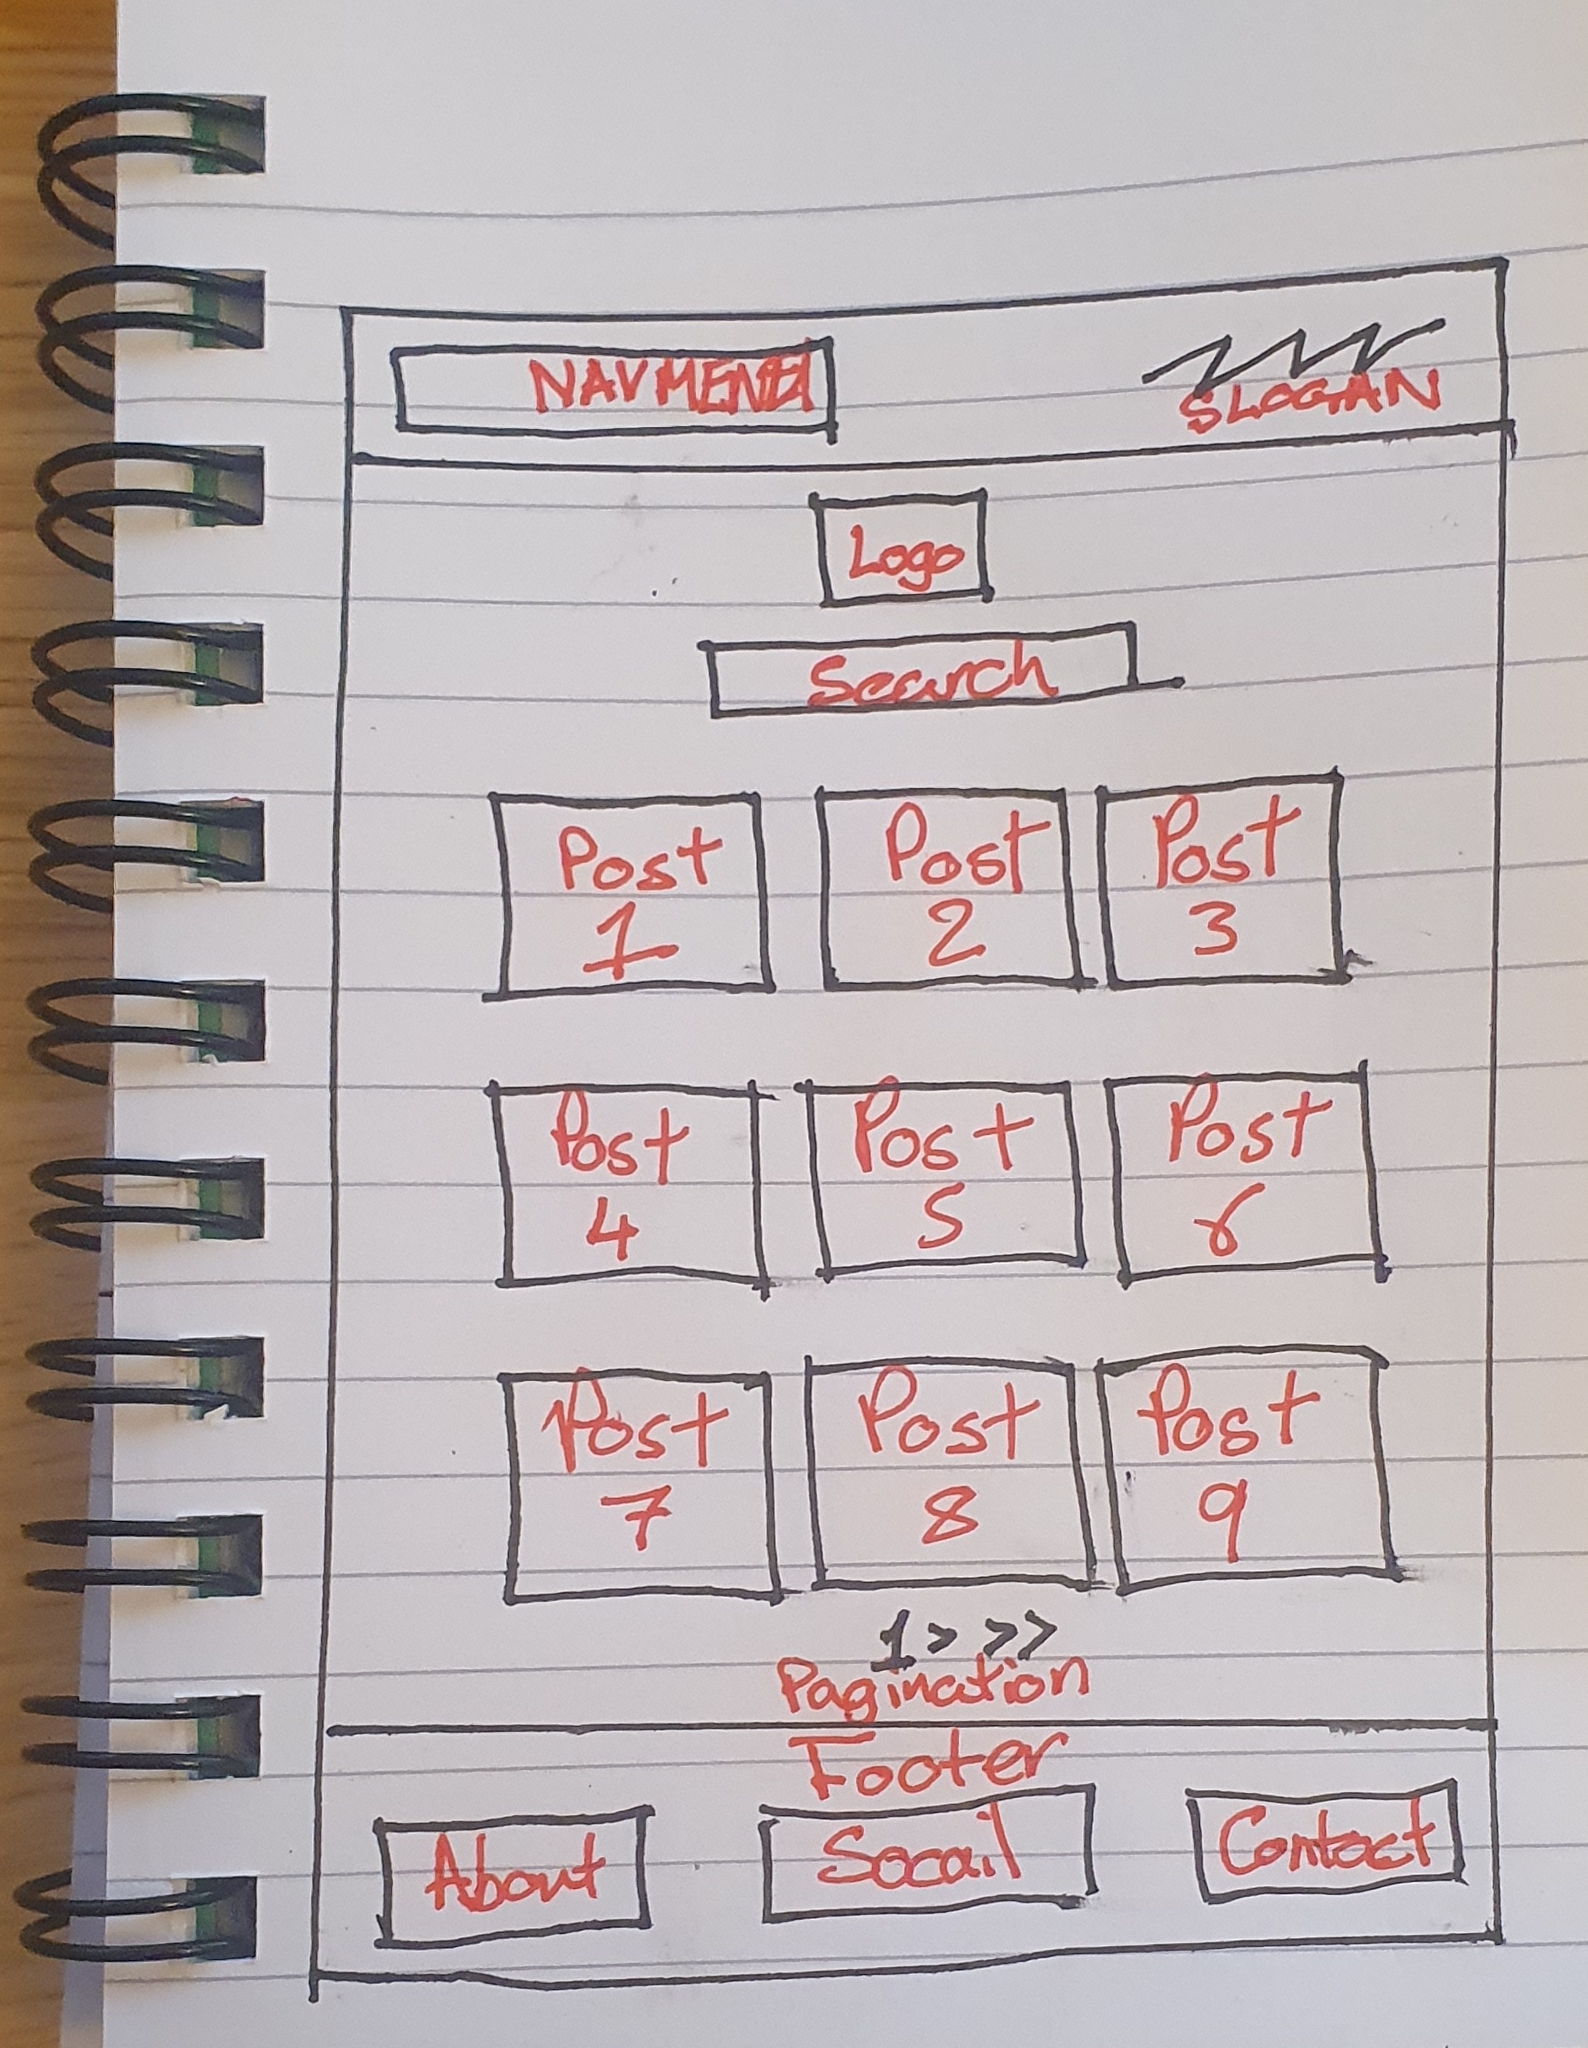 NAV MENU
SLOGAN
Logo
Search
Post
1
Post
2
Post
3
Post
4
Post
5
Post
6
Post
7
Post
8
Post
9
1> >>
Pagination
Footer
About
Socail
Contact